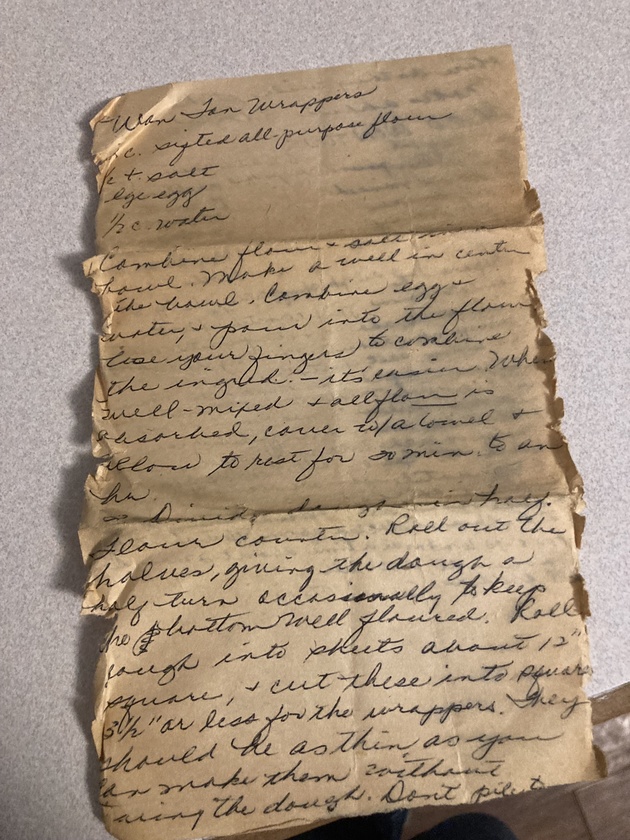 Won Ton Wrappers
c. sifted all-purpose flour
t. salt
lge egg
1/2 c. water
Combine flour + salt in a
bowl. Make a well in center
the bowl. Combine egg +
water, + pour into the flour
Use your fingers to combine
the ingred. - it's easier. When
well-mixed + all flour is
absorbed, cover w/a towel +
allow to rest for 30 min. to an
hr.
Divide dough in half.
Flour counter. Roll out the
halves, giving the dough a
half turn occasionally to keep
the bottom well floured. Roll
dough into sheets about 12"
square, + cut these into square
3 1/2" or less for the wrappers. They
should be as thin as you
can make them without
the dough. Dont pile